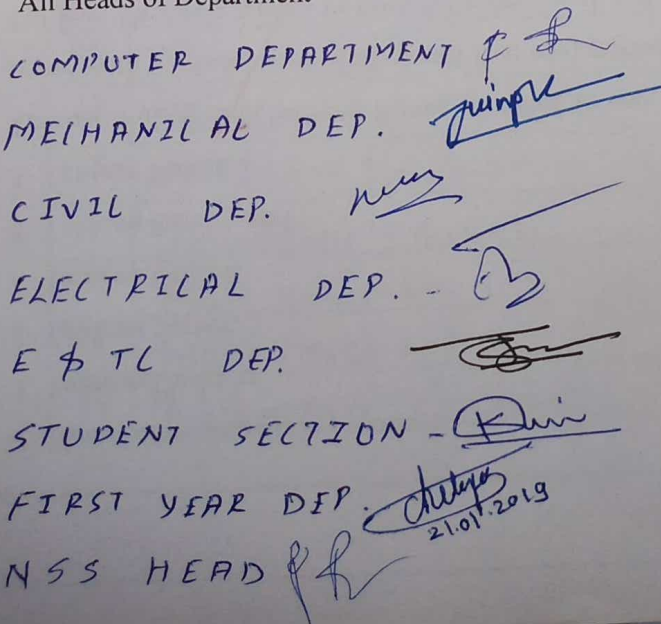 All Heads of Department
COMPUTER DEPARTMENT
MECHANICAL DEP.
CIVIL DEP.
ELECTRICAL DEP. -
E & TC DEP.
STUDENT SECTION -
FIRST YEAR DEP.
21.01.2019
NSS HEAD